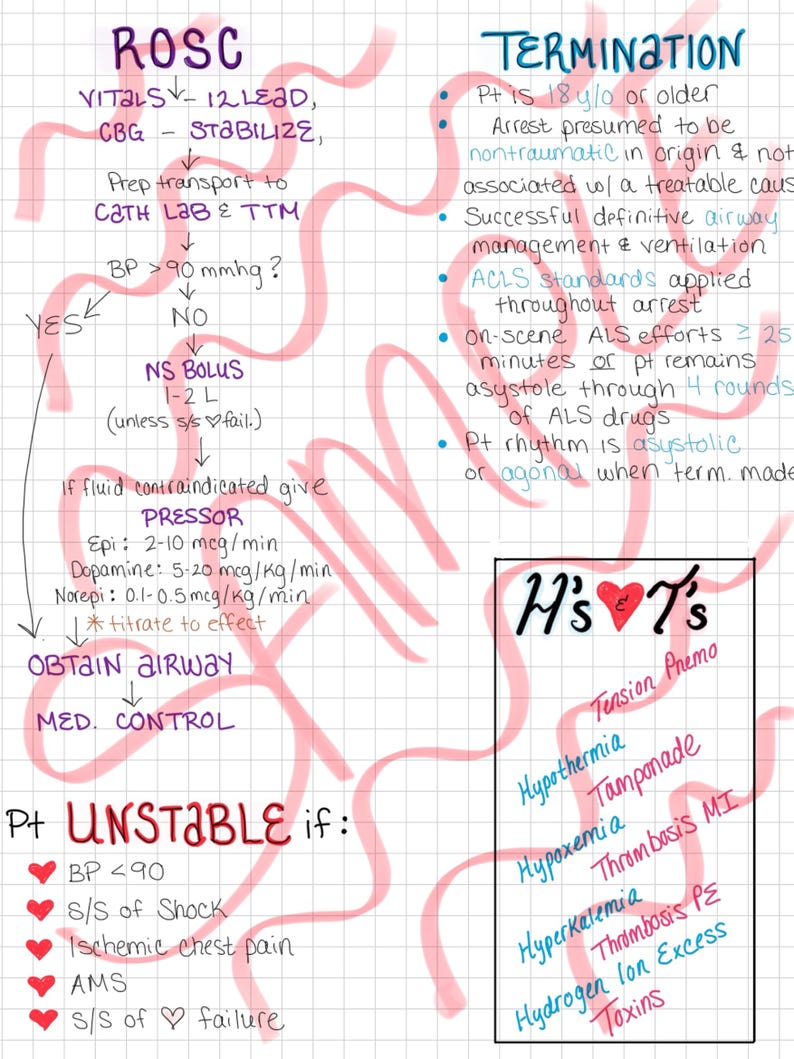 ROSC
VITALS - 12 LEAD,
CBG - STABILIZE,
Prep transport to
CATH LAB & TTM
BP > 90 mmhg?
YES
NO
NS BOLUS
1-2 L
(unless s/s ♡ fail.)
If fluid contraindicated give
PRESSOR
Epi: 2-10 mcg/min
Dopamine: 5-20 mcg/kg/min
Norepi: 0.1-0.5 mcg/kg/min
* titrate to effect
OBTAIN AIRWAY
MED. CONTROL
Pt UNSTABLE if:
BP <90
S/S of Shock
Ischemic chest pain
AMS
S/S of ♡ failure
TERMINATION
• Pt is 18 y/o or older
• Arrest presumed to be
nontraumatic in origin & not
associated w/ a treatable caus
• Successful definitive airway
management & ventilation
• ACLS standards applied
throughout arrest
• on-scene ALS efforts ≥ 25
minutes or pt remains
asystole through 4 rounds
of ALS drugs
• Pt rhythm is asystolic
or agonal when term. made
H's & T's
Tension Pnemo
Hypothermia
Tamponade
Hypoxemia
Thrombosis MI
Hyperkalemia
Thrombosis PE
Hydrogen Ion Excess
Toxins
SAMPLE